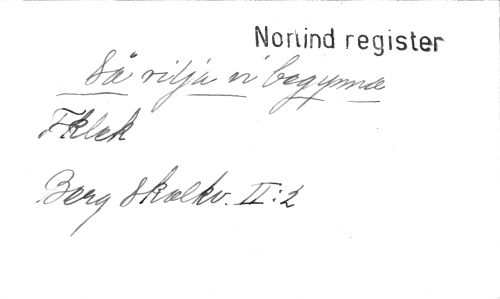 Norlind register
Så vilja vi begynna
Fklek
Berg Skalkv. II:2